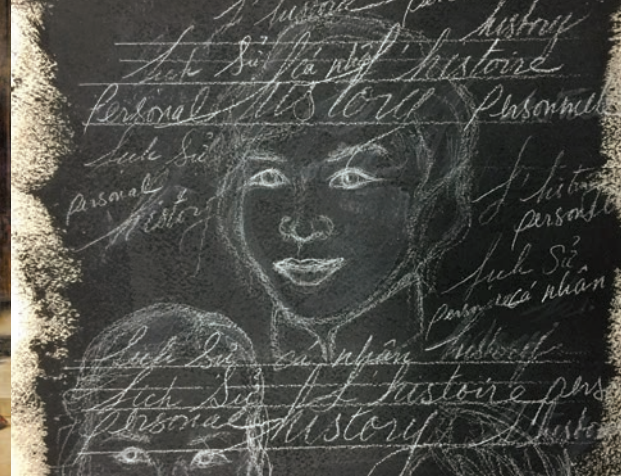 l'histoire per
history
Lịch Sử cá nhân l'histoire
Personal history Personnel
Lịch Sử
personal
History
l'histoire
personal
Lịch Sử
cá nhân
Lịch Sử cá nhân history
Lịch Sử L'histoire pers
personal history L'histoi